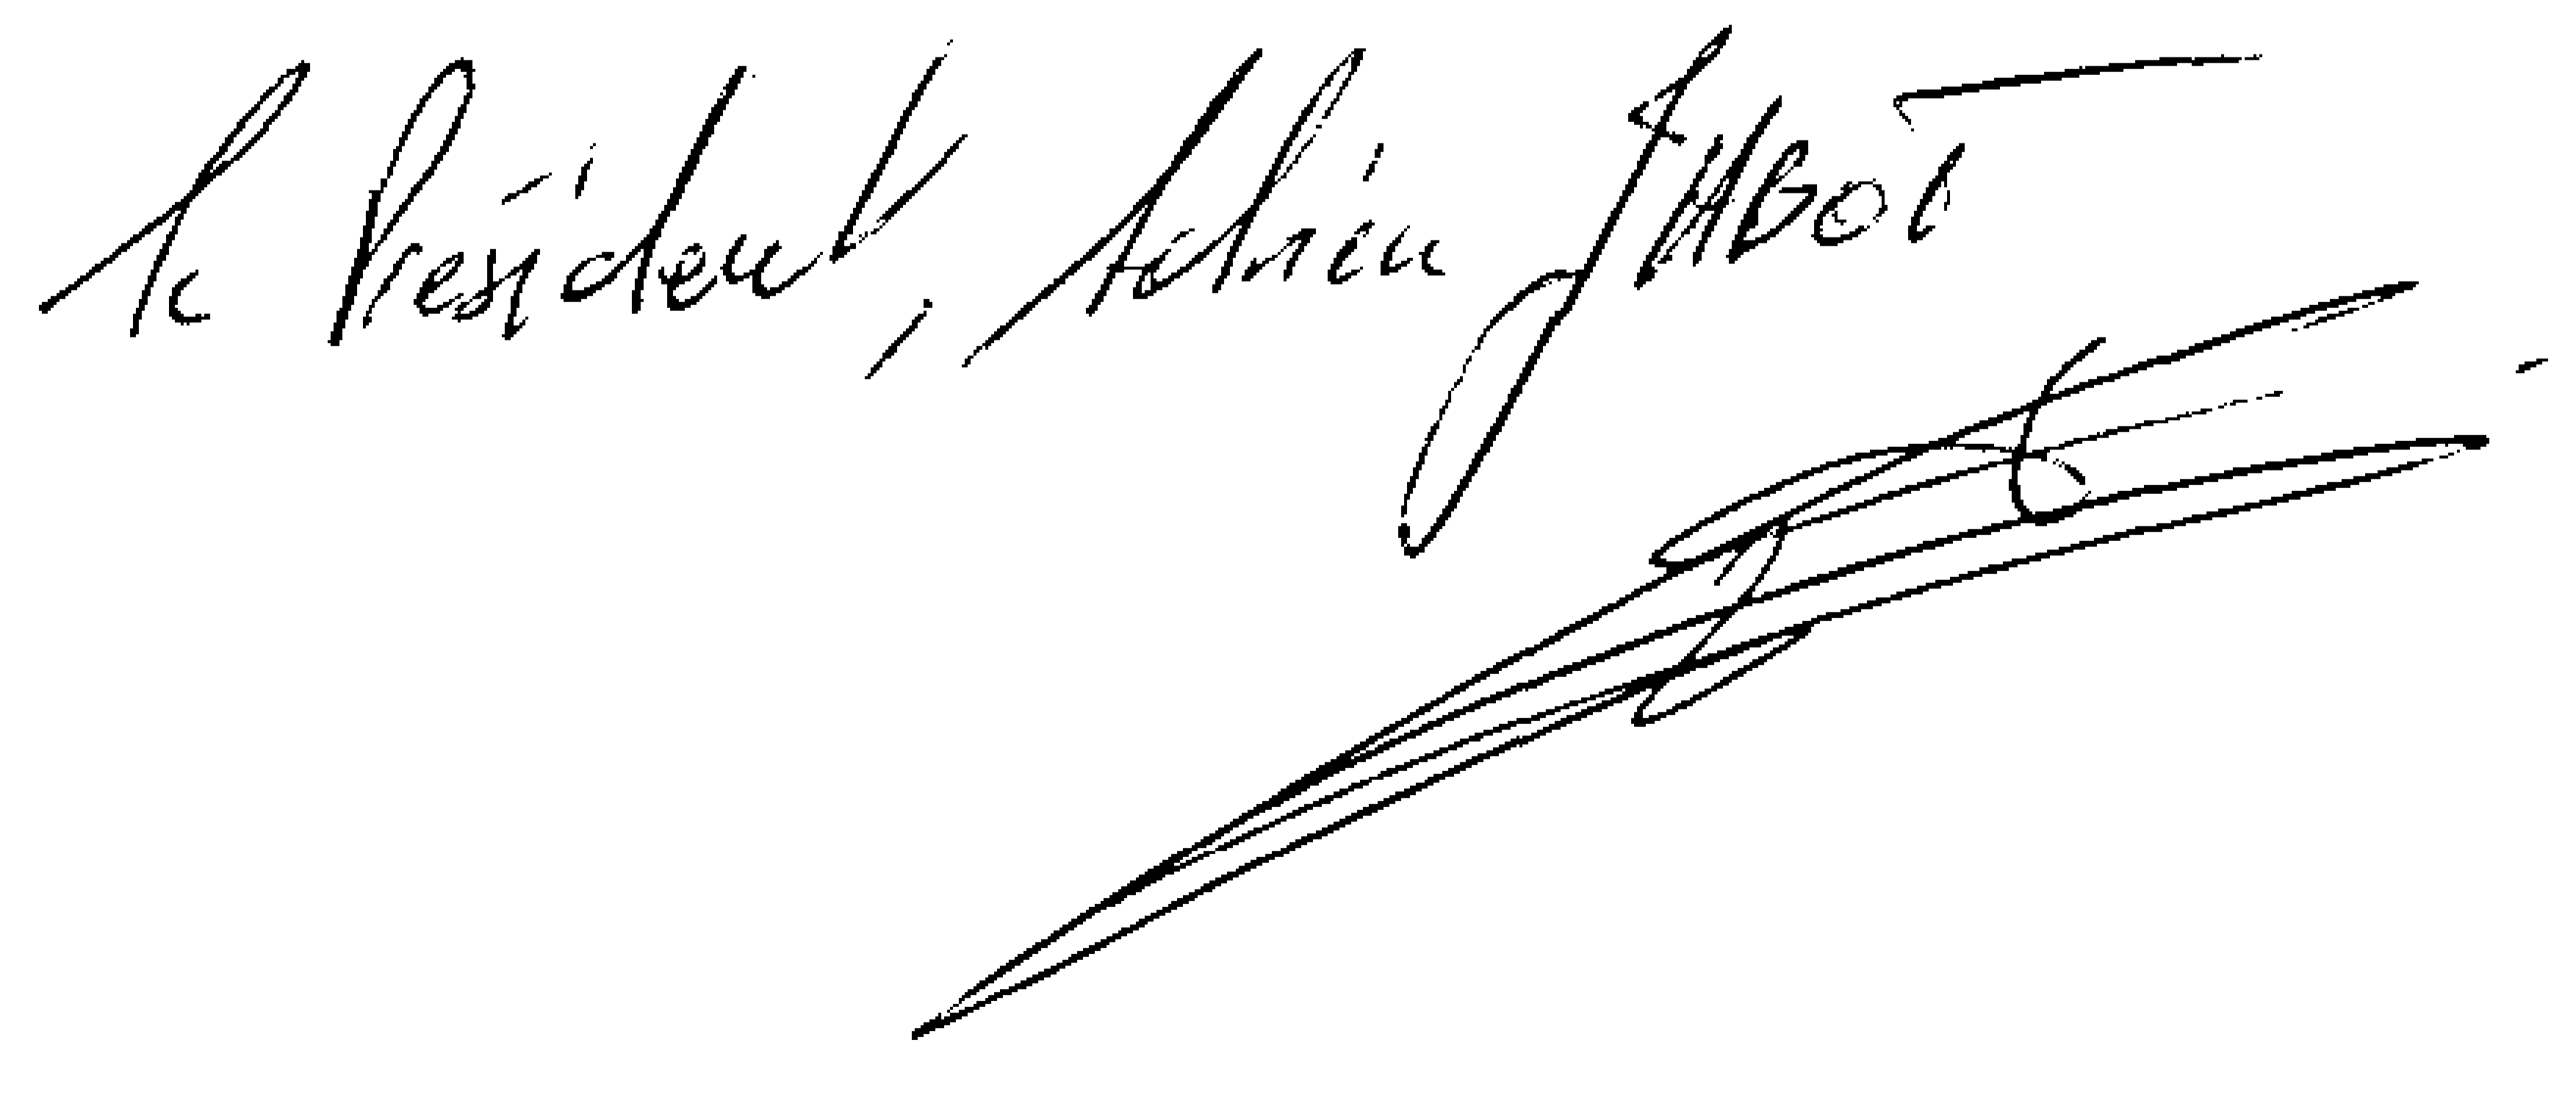 Le Président, Adrien JABOT